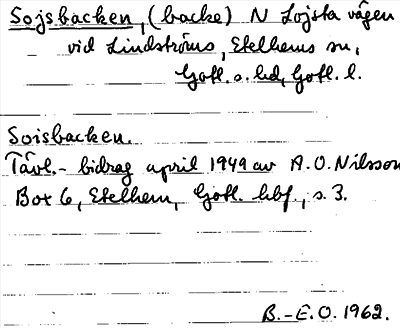 Sojsbacken, (backe) N Lojsta vägen
vid Lindströms, Etelhems sn,
Gotl. s. hd, Gotl. l.
Soisbacken.
Tävl.- bidrag april 1949 av A.O. Nilsson
Box 6, Etelhem, Gotl. hbf., s. 3.
B.-E.O. 1962.